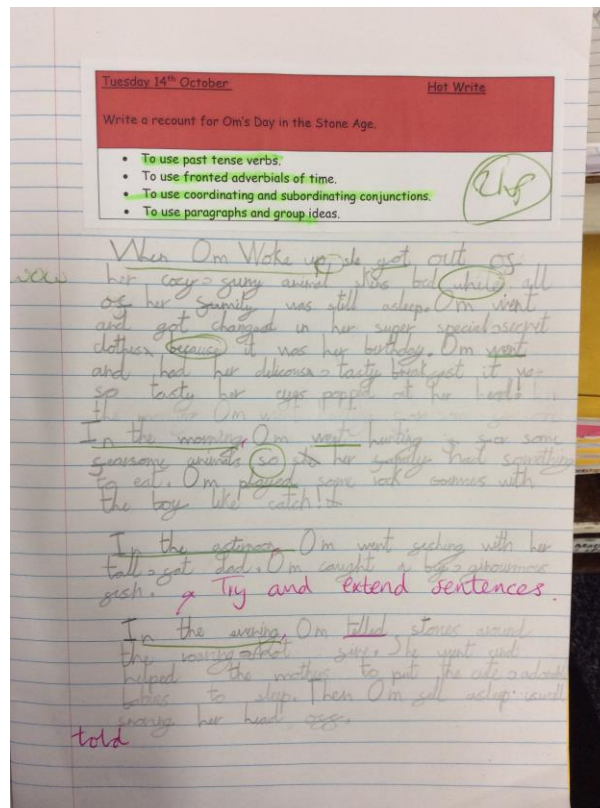 Tuesday 14th October Hot Write
Write a recount for Om's Day in the Stone Age.
• To use past tense verbs.
• To use fronted adverbials of time.
• To use coordinating and subordinating conjunctions.
• To use paragraphs and group ideas.
When Om Woke up, she got out of
wow her cosy, furry animal skins bed while all
of her family was still asleep. Om went
and got changed in her super special, secret
clothes because it was her birthday. Om went
and had her delicouse, tasty breakfast it
so tasty her eyes popped out her head!
In the morning, Om went hunting for some
fearsome animals so her family had something
to eat. Om played some rock games with
the boy like catch!
In the Om went fishing with her
tall, fat dad. Om caught a
fish. Try and extend sentences.
In the evening, Om telled stories around
the roaring, hot fire. She went and
helped the mothers to put the cute
babies to sleep. Then Om fell asleep
snoring her head off.
told